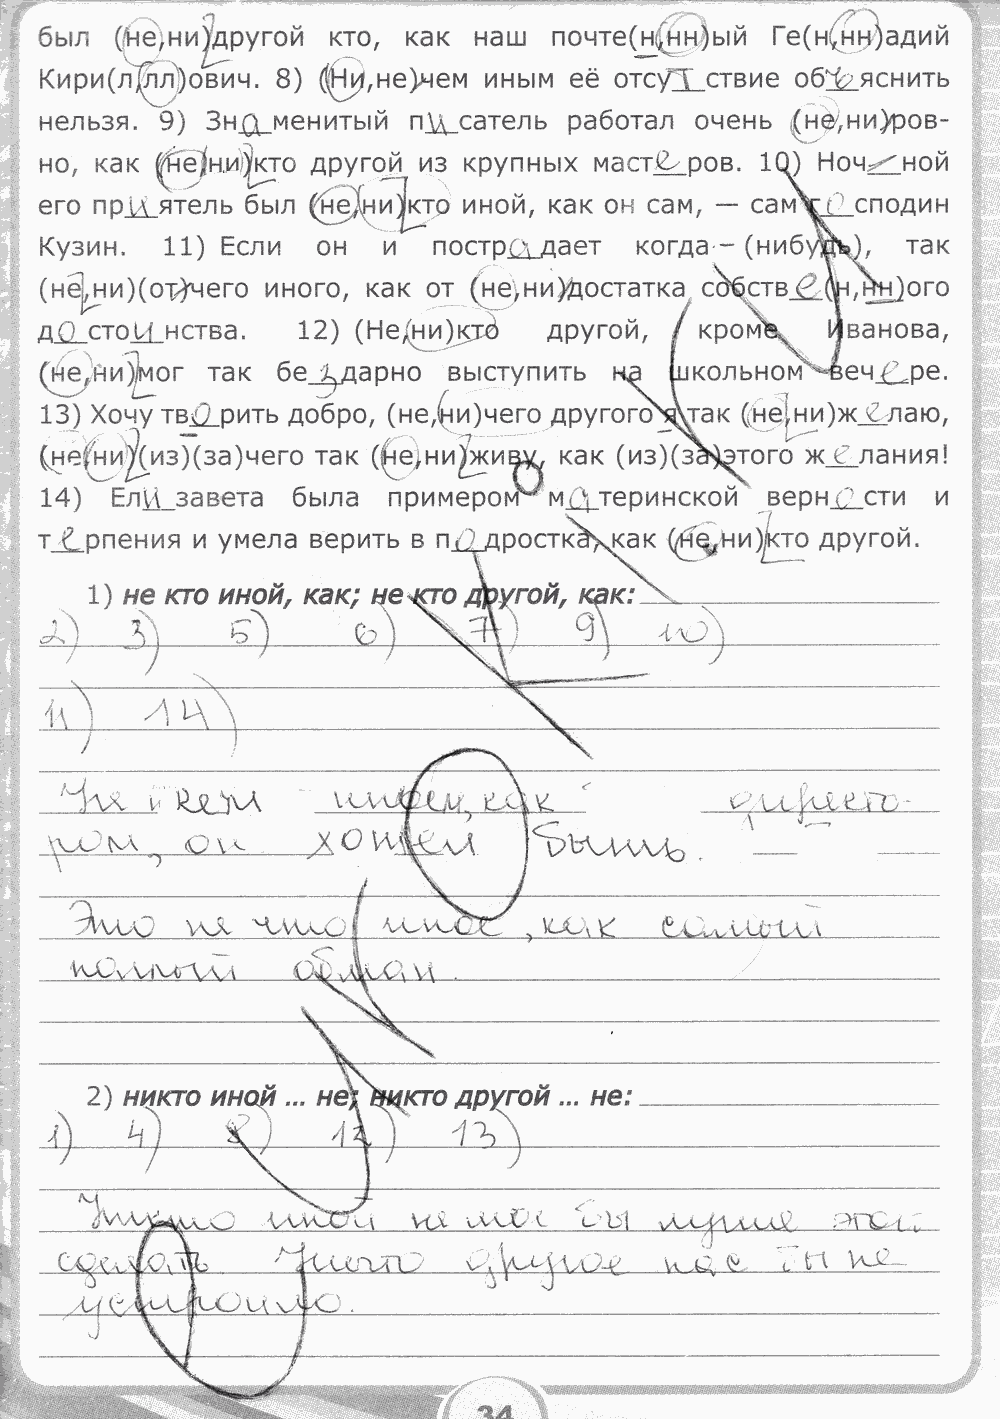 был (не,ни)другой кто, как наш почте(н,нн)ый Ге(н,нн)адий
Кири(л,лл)ович. 8) (Ни,не)чем иным её отсутствие объяснить
нельзя. 9) Знаменитый писатель работал очень (не,ни)ров-
но, как (не,ни)кто другой из крупных мастеров. 10) Ноч_ной
его приятель был (не,ни)кто иной, как он сам, — сам господин
Кузин. 11) Если он и пострадает когда-(нибудь), так
(не,ни)(от)чего иного, как от (не,ни)достатка собстве(н,нн)ого
достоинства. 12) (Не,ни)кто другой, кроме Иванова,
(не,ни)мог так бездарно выступить на школьном вечере.
13) Хочу творить добро, (не,ни)чего другого я так (не,ни)желаю,
(не,ни)(из)(за)чего так (не,ни)живу, как (из)(за)этого желания!
14) Елизавета была примером материнской верности и
терпения и умела верить в подростка, как (не,ни)кто другой.
1) не кто иной, как; не кто другой, как:
2) 3) 5) 6) 7) 9) 10)
11) 14)
Не кем иным, как директо-
ром, он хотел быть.
Это не что иное, как самый
полный обман.
2) никто иной ... не; никто другой ... не:
1) 4) 8) 12) 13)
Никто иной не мог бы лучше это
сделать. Ничто другое нас бы не
устроило.
34